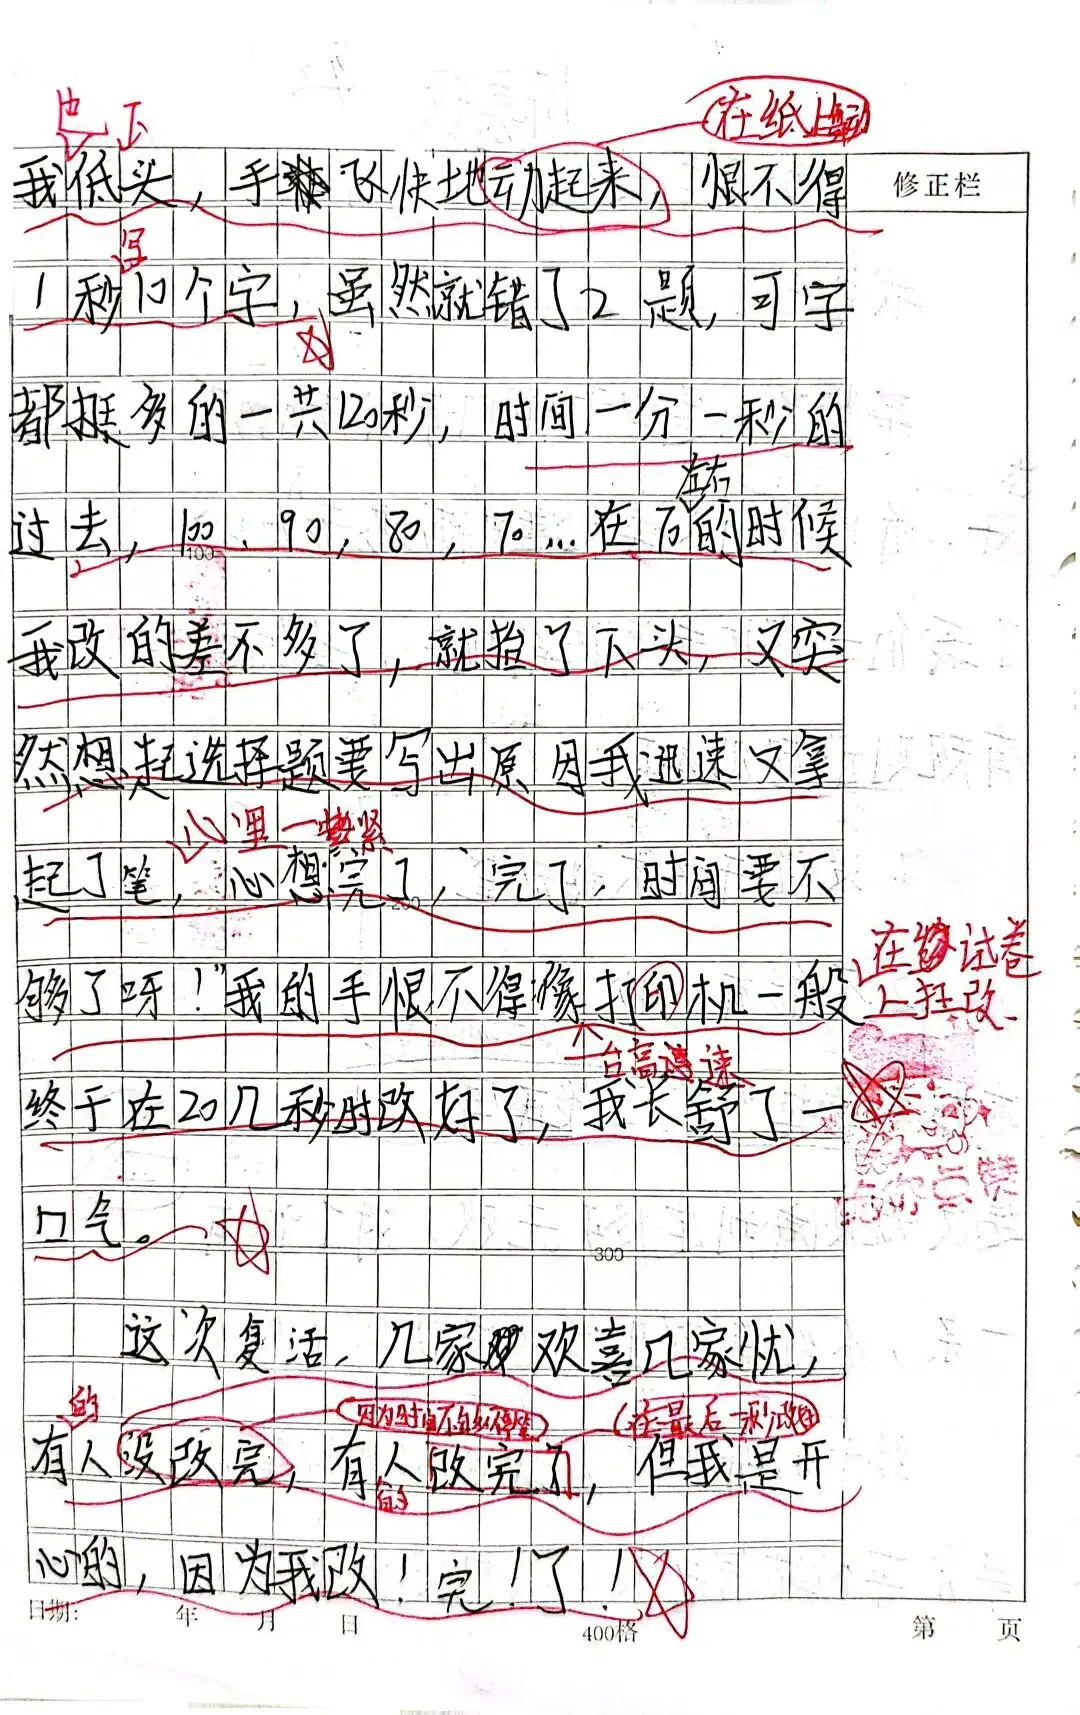 在纸上
我低头，手飞快地动起来，恨不得
修正栏
写
1秒10个字，虽然就错了2题，可字
都挺多的一共120秒，时间一分一秒的
左右
过去，100、90，80，70…在70的时候
100
我改的差不多了，就抬了下头，又突
然想起选择题要写出原因我迅速又拿
心里一紧
起了笔，心想完了，完了，时间要不
200
在试卷
上狂改
够了呀！”我的手恨不得像打印机一般
一台高速
终于在20几秒时改好了，我长舒了一
给你点赞
口气。
300
这次复活，几家欢喜几家忧，
的
在最后一秒改
有人没改完，有人改完了，但我是开
的
心的，因为我改！完！了！
日期：年月日
400格
第 页